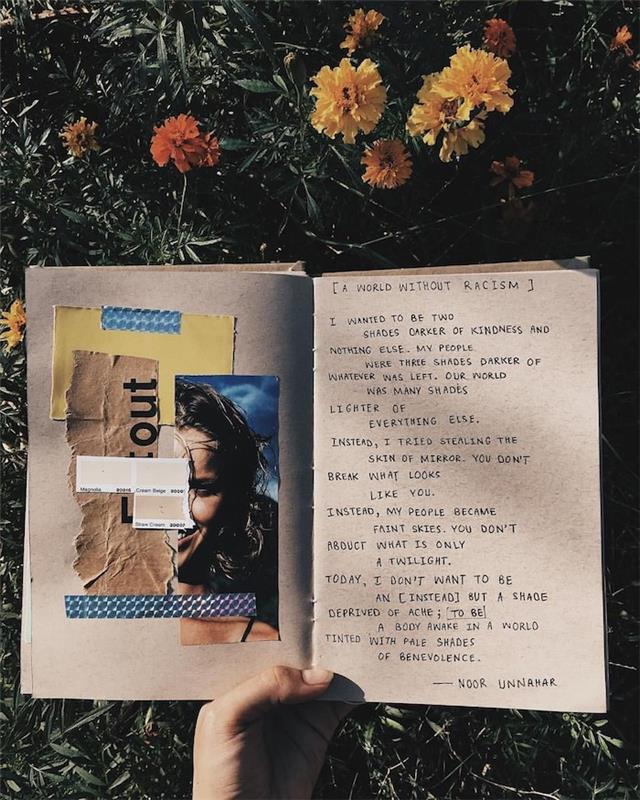 tout
Magnolia 20015 Cream Beige
Straw Cream
[A WORLD WITHOUT RACISM]
I WANTED TO BE TWO
SHADES DARKER OF KINDNESS AND
NOTHING ELSE. MY PEOPLE
WERE THREE SHADES DARKER OF
WHATEVER WAS LEFT. OUR WORLD
WAS MANY SHADES
LIGHTER OF
EVERYTHING ELSE.
INSTEAD, I TRIED STEALING THE
SKIN OF MIRROR. YOU DON'T
BREAK WHAT LOOKS
LIKE YOU.
INSTEAD, MY PEOPLE BECAME
FAINT SKIES. YOU DON'T
ABDUCT WHAT IS ONLY
A TWILIGHT.
TODAY, I DON'T WANT TO BE
AN [INSTEAD] BUT A SHADE
DEPRIVED OF ACHE; [TO BE]
A BODY AWAKE IN A WORLD
TINTED WITH PALE SHADES
OF BENEVOLENCE.
— NOOR UNNAHAR